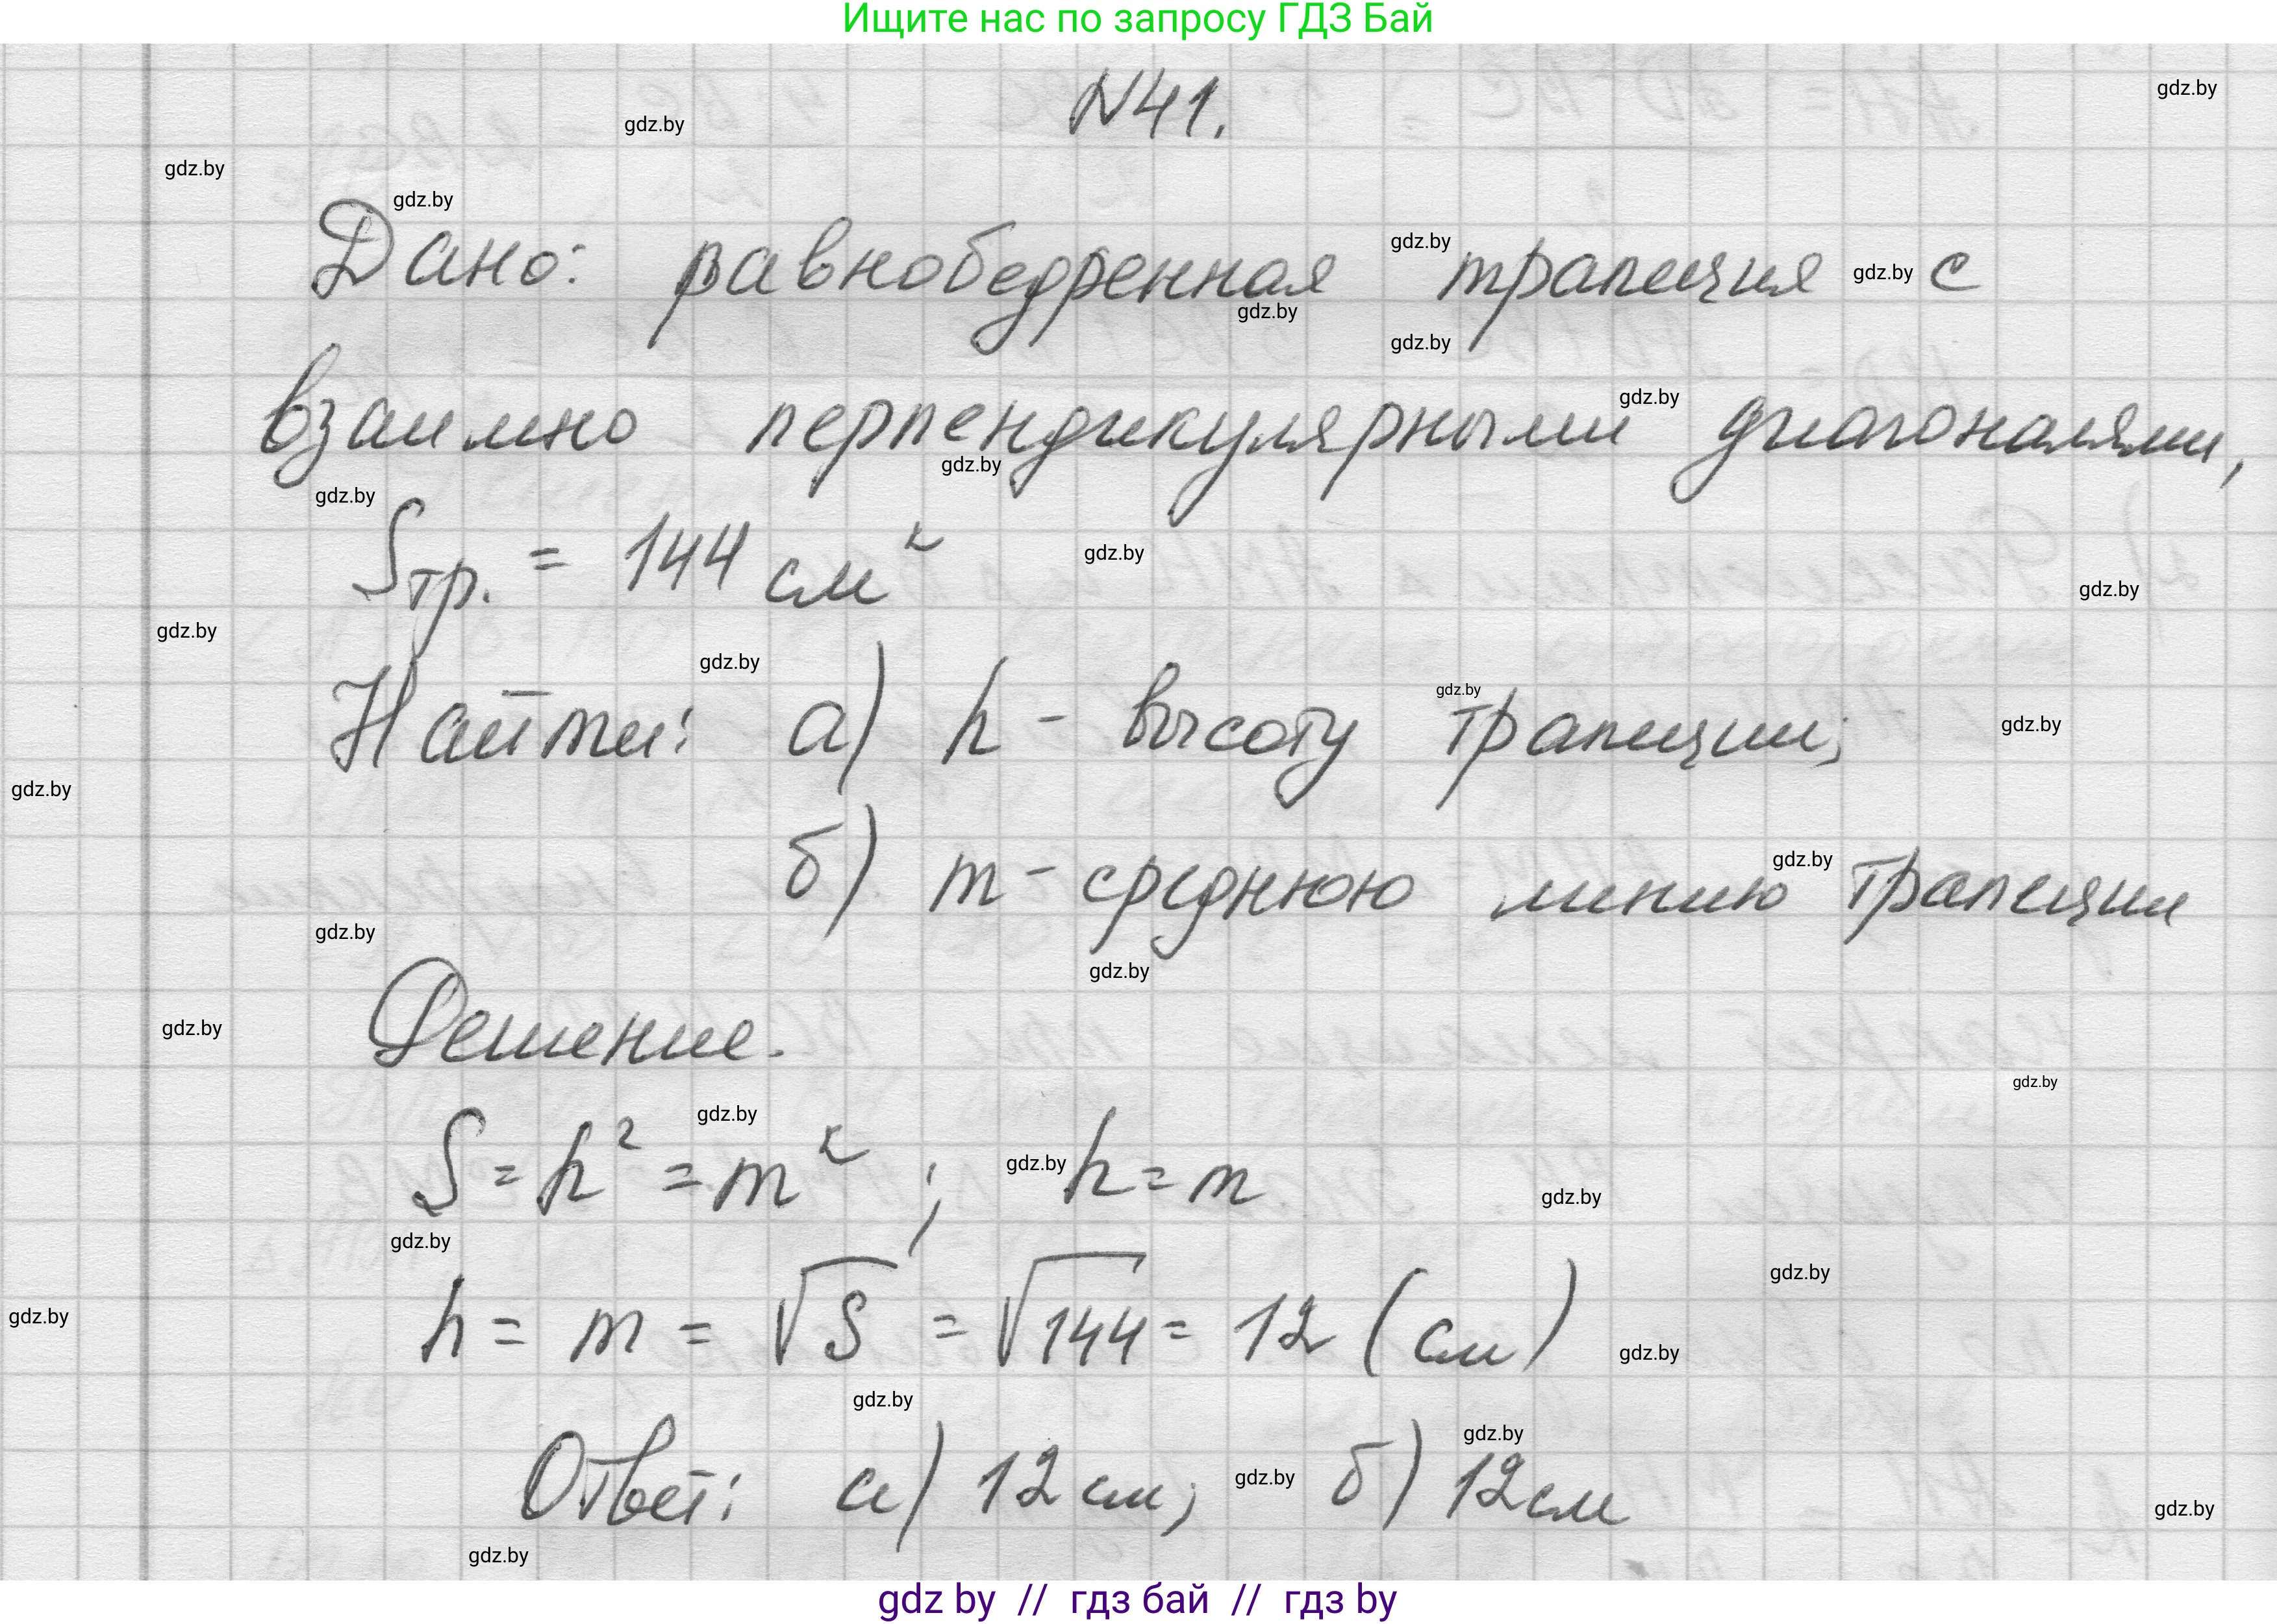 Ищите нас по запросу ГДЗ Бай
N41.
gdz.by
gdz.by
gdz.by
gdz.by
Дано: равнобедренная трапеция с
gdz.by
gdz.by
gdz.by
gdz.by
взаимно перпендикулярными диагоналями,
gdz.by
gdz.by
gdz.by
Sтр. = 144 см²
gdz.by
gdz.by
gdz.by
Найти: а) h - высоту трапеции;
gdz.by
gdz.by
gdz.by
gdz.by
б) m - среднюю линию трапеции
gdz.by
gdz.by
gdz.by
Решение.
gdz.by
gdz.by
S = h² = m² ; h = m
gdz.by
gdz.by
gdz.by
gdz.by
h = m = √S = √144 = 12 (см)
gdz.by
gdz.by
gdz.by
gdz.by
Ответ: а) 12 см; б) 12 см
gdz.by
gdz.by
gdz.by
gdz.by
gdz by // гдз бай // гдз by